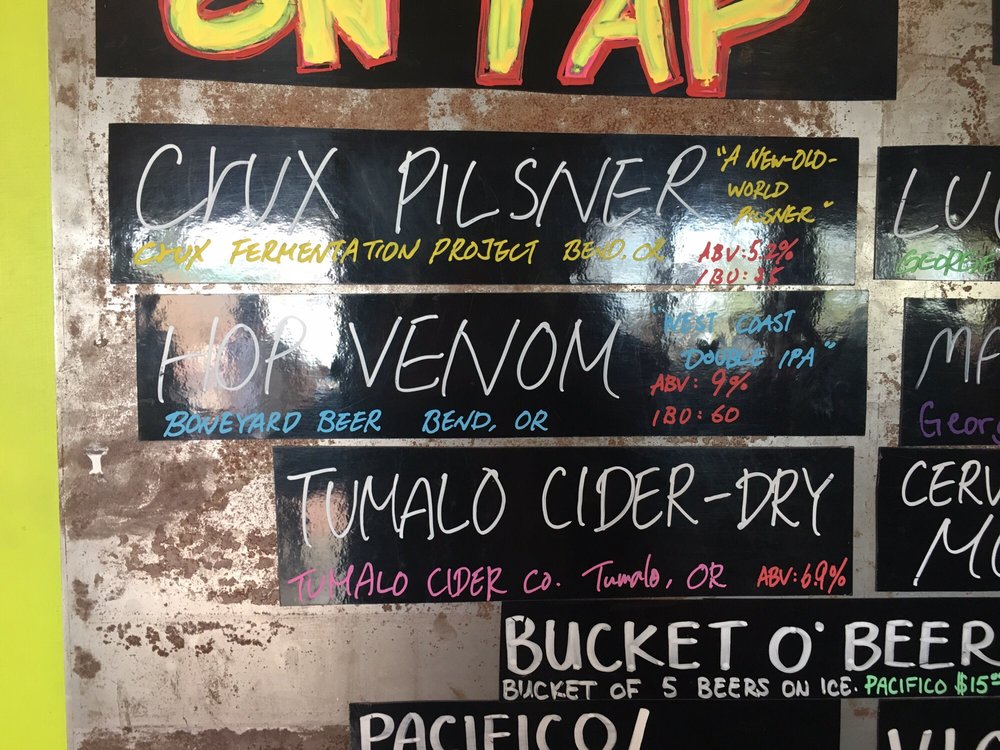 ON TAP
Crux PILSNER
"A NEW-OLD-
WORLD
PILSNER"
CRUX FERMENTATION PROJECT BEND, OR
ABV: 5.2%
IBU:
HOP VENOM
"WEST COAST
DOUBLE IPA"
ABV: 9%
IBU: 60
BONEYARD BEER BEND, OR
TUMALO CIDER-DRY
TUMALO CIDER Co. Tumalo, OR ABV: 6.9%
BUCKET O' BEER
BUCKET OF 5 BEERS ON ICE. PACIFICO $15
PACIFICO/
CERV